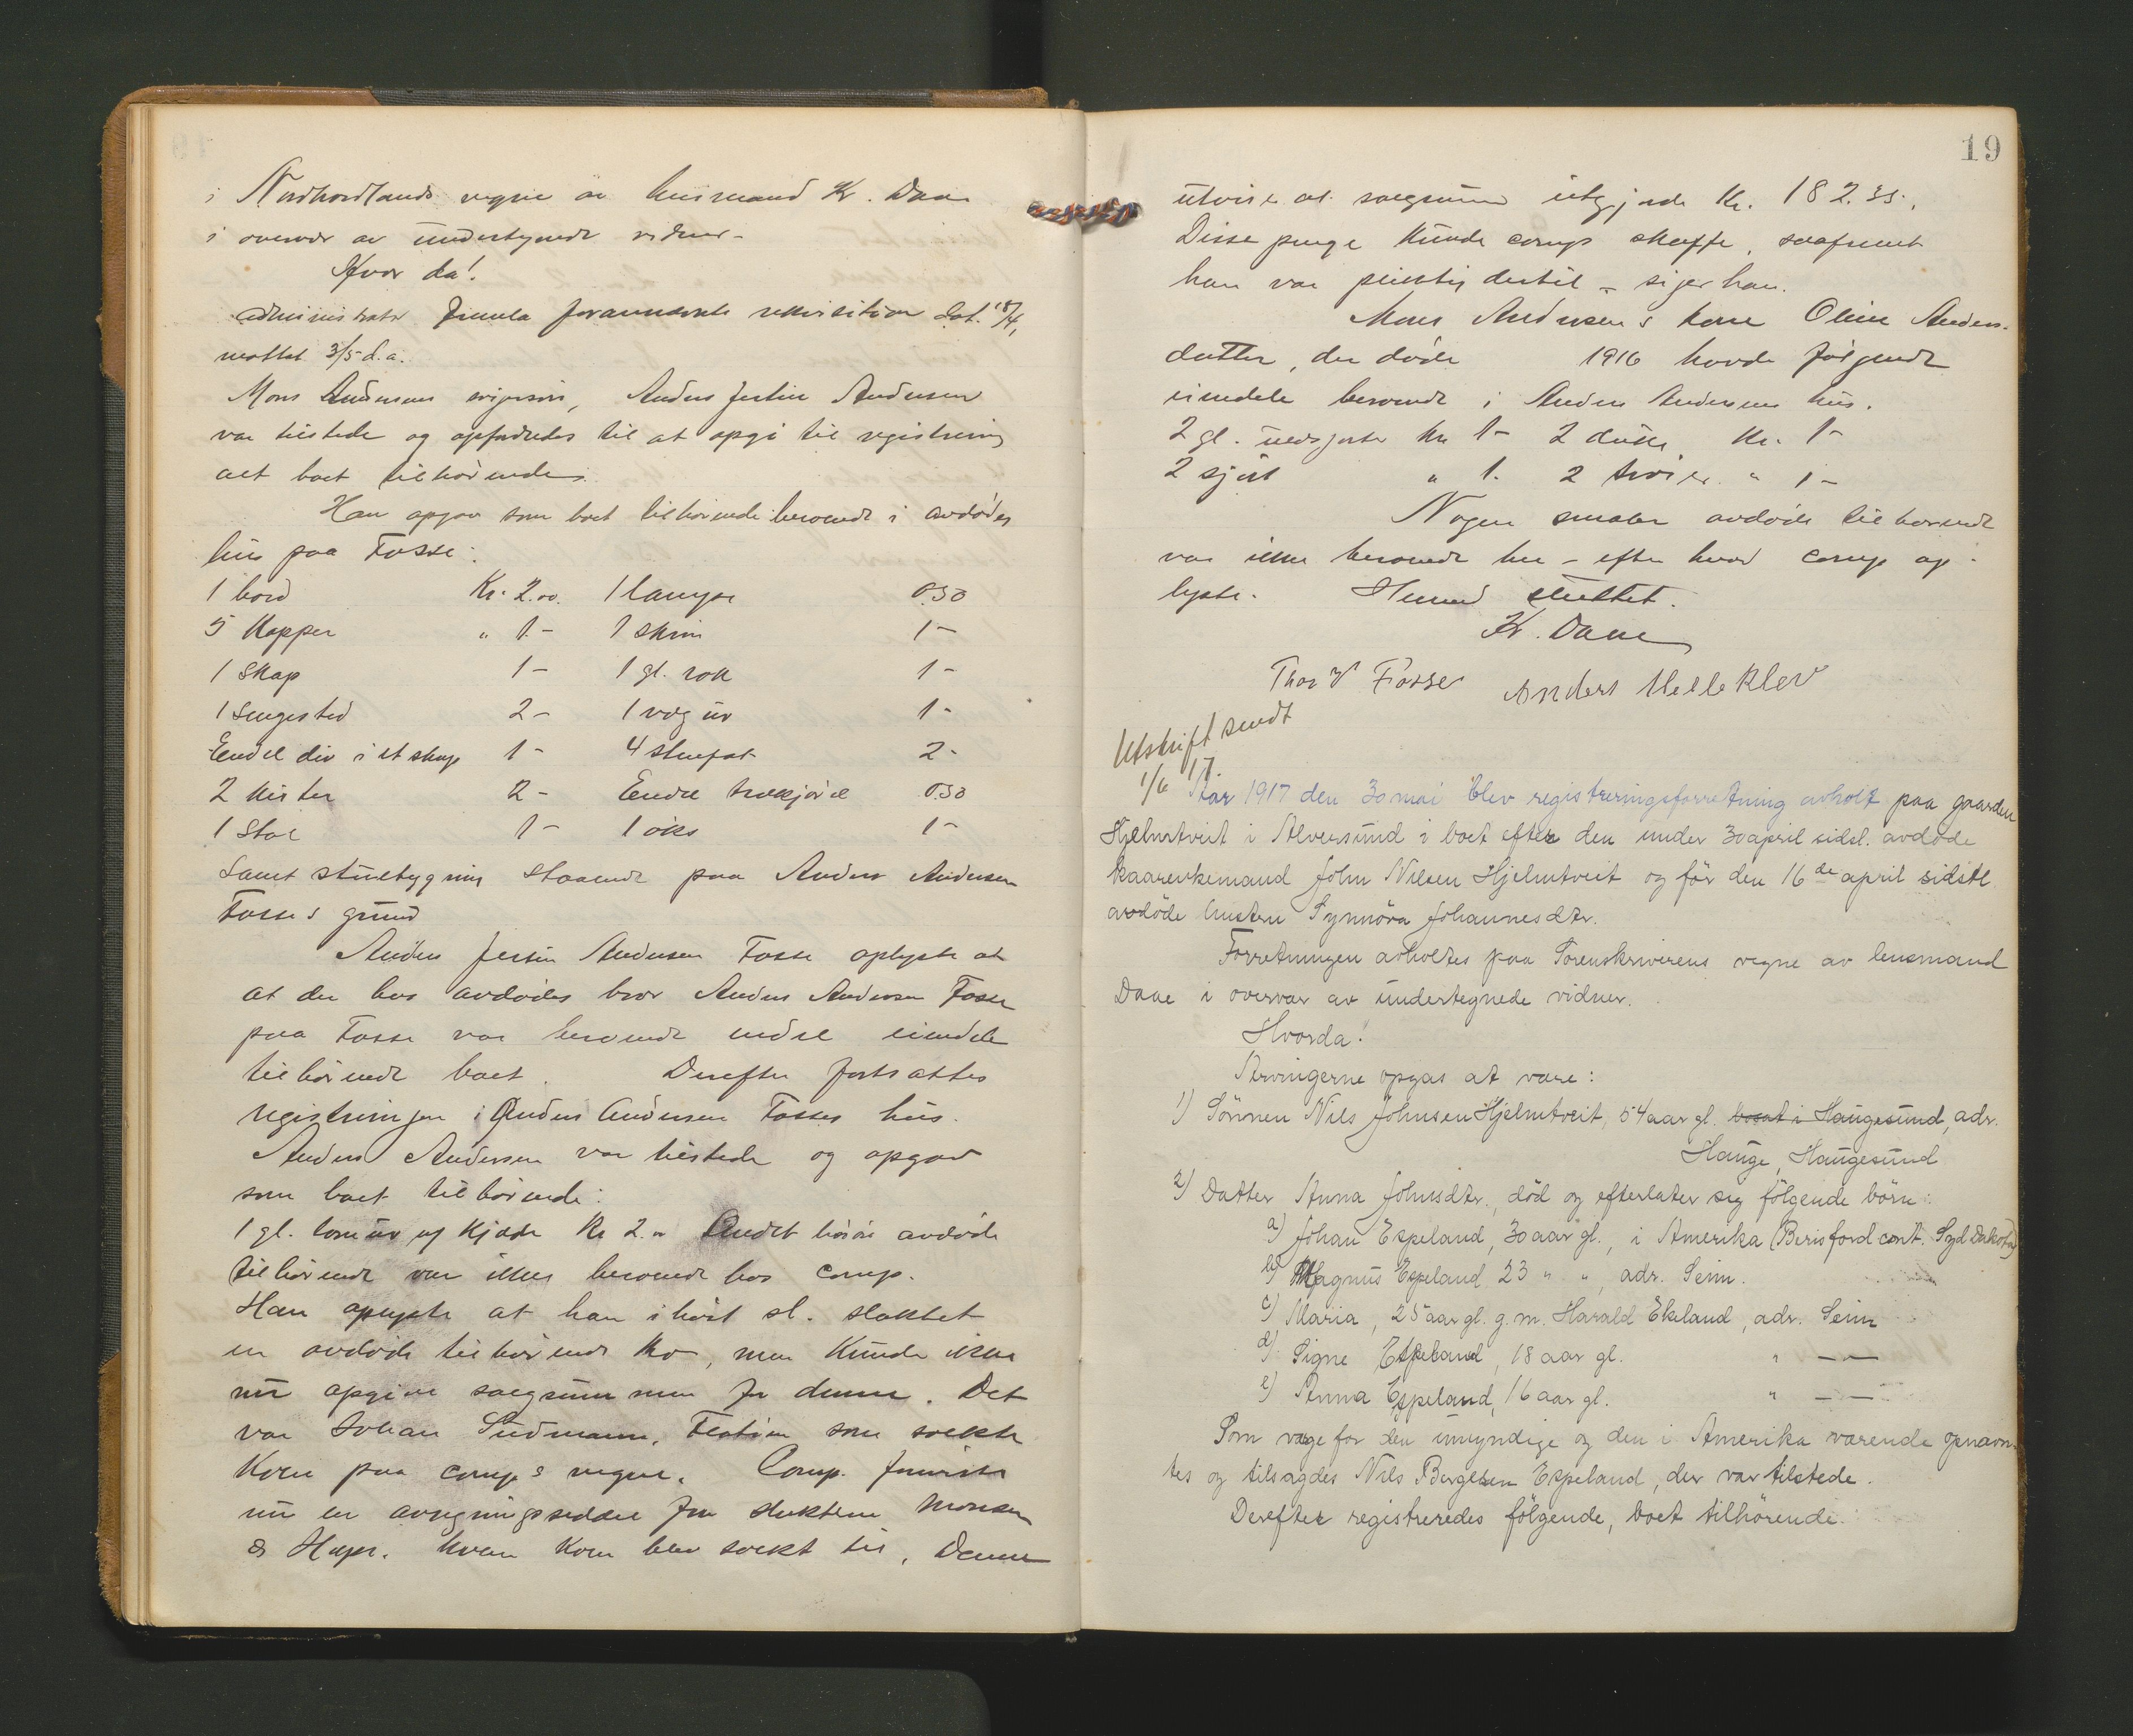 i Nordhordlands vegne av lensmand Kr. Daae
i overvær av undertegnede vidner -
Hvor da!
Administrator fremla forannævnte rekvisition dat. 18/4,
mottat 3/5 d.a.
Mons Andersens svigersøn, Anders Jertin Andersen
var tilstede og opfordredes til at opgi til registrering
alt boet tilhørende.
Han opgav som boet tilhørende beroende i avdødes
hus paa Fosse:
1 bord Kr. 2.00. 1 lampe 0.50
5 Kopper " 1.- 1 skrin 1-
1 skap 1- 1 gl. rok 1-
1 sengested 2- 1 væg ur 1-
Endel div i et skap 1- 4 stenfat 2-
2 kister 2- Endel trækjørel 0.50
1 stol 1- 1 øks 1-
Samt stuebygning staaende paa Anders Andersen
Fosses grund
Anders Jertin Andersen Fosse oplyste at
at der hos avdødes bror Anders Andersen Fosse
paa Fosse var beroende endel eiendele
tilhørende boet. Derefter fortsattes
registreringen i Anders Andersen Fosses hus.
Anders Andersen var tilstede og opgav
som boet tilhørende:
1 gl. lomeur og kjæde Kr 2.- Andet løsøre avdøde
tilhørende var ikke beroende hos comp.
Han oplyste at han i høst sl. slaktet
en avdøde tilhørende ko, men kunde ikke
nu opgive salgssummen for denne. Det
var Johan Sudmann, Flatøen som solgte
Koen paa comp's vegne. Comp. foreviste
nu en avregningsseddel fra slakterne Monsen
& hvem Koen blev solgt til, Denne
19
utviser at salgssum utgjorde Kr. 182.35.,
Disse penge kunde comp skaffe, saafremt
han var pliktig dertil - siger han.
Mons Andersens kone Oline Anders-
datter, der døde 1916 havde følgende
eiendele beroende i Anders Andersens hus.
2 gl. Kr 1- 2 duker Kr. 1-
2 skjørt " 1. 2 trøier " 1-
Nogen smaler avdøde tilhørende
var ikke beroende her - efter hvad comp op-
lyste. Hermed sluttet.
Kr. Daae
Thor Fosse Anders Helleklev
Utskrift sendt
1/6 17.
Aar 1917 den 30 mai blev registreringsforretning avholdt paa gaarden
Hjelmtveit i Alversund i boet efter den under 30 april sidstl. avdøde
kaarenkemand John Nilsen Hjelmtveit og før den 16de april sidstl.
avdøde hustru Synnøva Johannesdtr.
Forretningen avholdtes paa Sorenskriverens vegne av lensmand
Daae i overvær av undertegnede vidner.
Hvorda!
Arvingerne opgas at være:
1) Sønnen Nils Johnsen Hjelmtveit, 54 aar gl. bosat i Haugesund, adr.
Hauge, Haugesund
2) Datter Anna Johnsdtr., død og efterlater sig følgende børn:
a) Johan Espeland, 30 aar gl., i Amerika (Berisford cont. Syd Dakota)
b) Magnus Espeland 23 " ", adr. Seim.
c) Maria, 25 aar gl. g.m. Harald Ekeland, adr. Seim
d) Signe Espeland, 18 aar gl. " — —
e) Anna Espeland, 16 aar gl. " — —
Som verge for den umyndige og den i Amerika værende opnævn-
tes og tilsagdes Nils Bergesen Espeland, der var tilstede.
Derefter registreredes følgende, boet tilhørende: